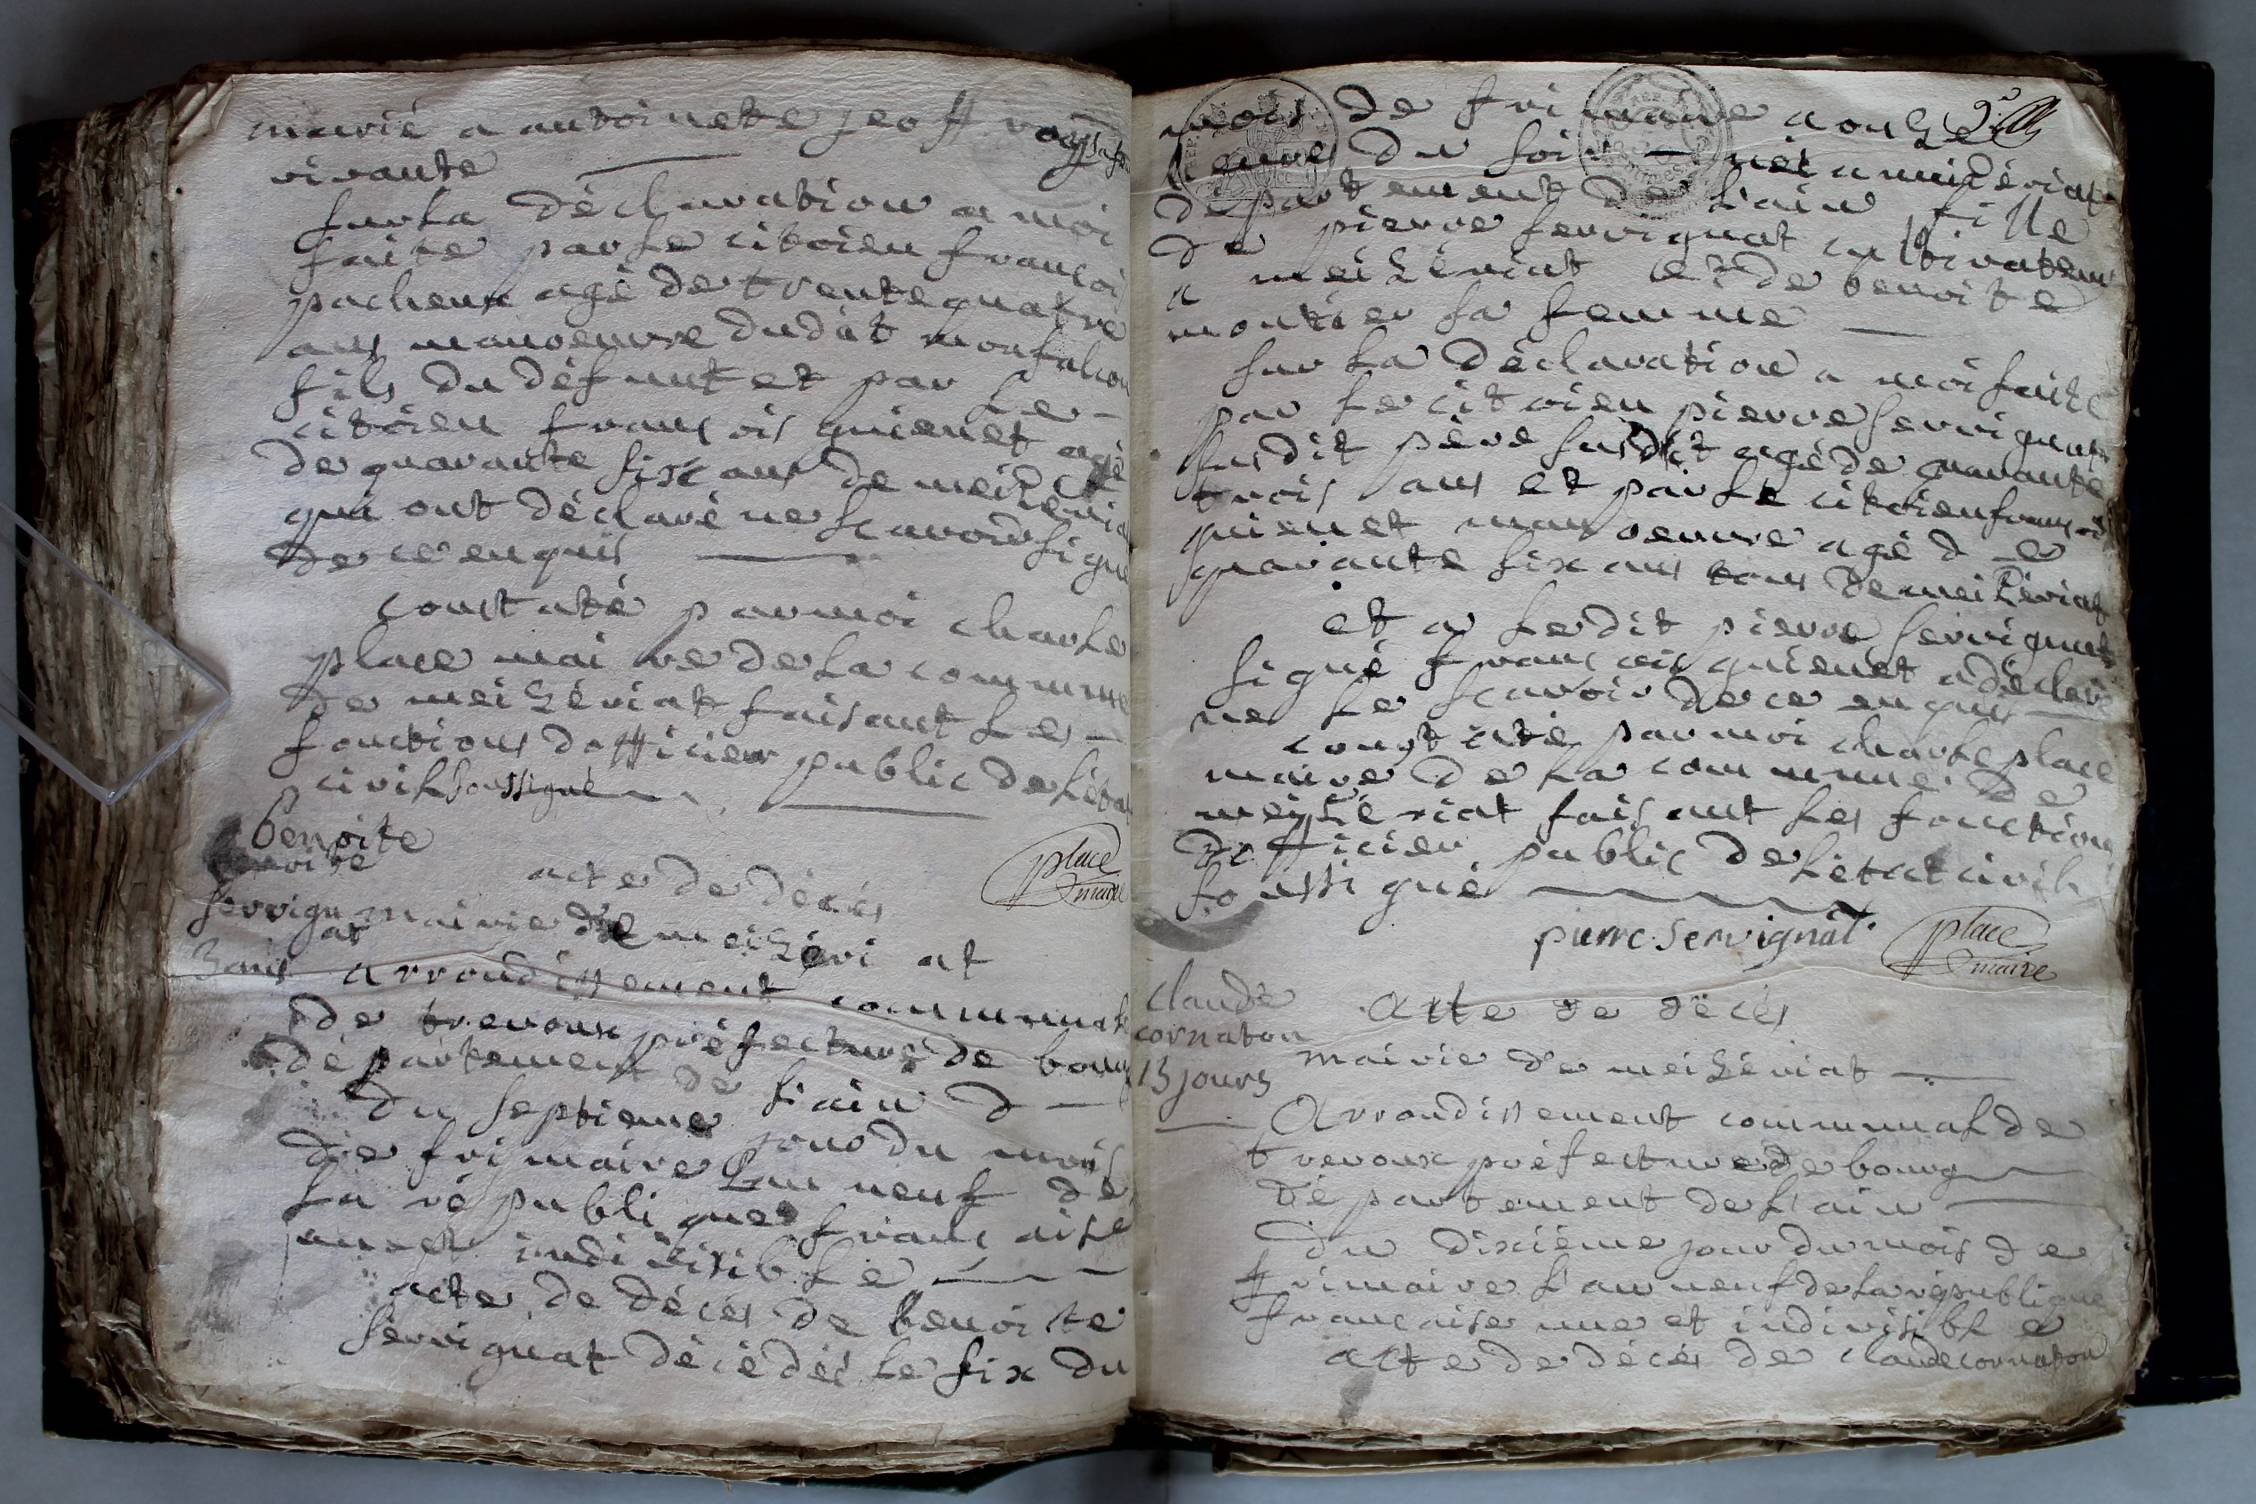 marié a antoinette jeoffray
vivante
sur la déclaration a moi
faite par le citoien françois
pacheux agé de trente quatre
ans manoeuvre dudit monfalcon
fils du défunt et par le
citoien françois guienet agé
de quarante six ans de meizériat
qui ont déclaré ne scavoir signe
de ce enquis
constaté par moi charle
place maire de la commune
de meizériat faisant les
fonctions dofficier public de létat
civil soussigné
place
maire
benoite
benoite
servignat
3 ans
acte de décés
mairie de meizériat
arrondissement communal
de trevoux préfecture de bourg
département de lain
du septieme jour du mois
de frimaire lan neuf de
la république française
une et indivisible
acte de décés de benoite
servignat décédés le six du
mois de frimaire a onze
heures du soir née a meizériat
département de lain fille
de pierre servignat cultivateur
a meizériat et de benoite
montier sa femme
sur la déclaration a moi faite
par le citoien pierre servignat
susdit père susdit agé de quarante
trois ans et par le citoien françois
guienet manoeuvre agé de
quarante six ans tous de meizériat
et a ledit pierre servignat
signé françois guienet a déclaré
ne le scavoir de ce enquis
constaté par moi charle place
maire de la commune de
meizériat faisant les fonctions
dofficier public de létat civil
soussigné
pierre servignat
place
maire
claude
cornaton
13 jours
acte de décés
mairie de meizériat
arrondissement communal de
trevoux préfecture de bourg
département de lain
du dixième jour du mois de
frimaire lan neuf de la république
française une et indivisible
acte de décés de claude cornaton